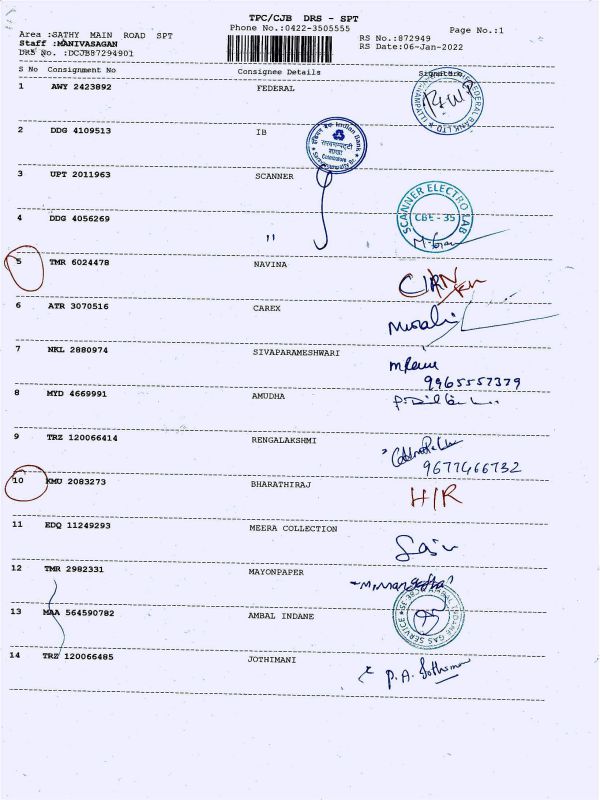 TPC/CJB DRS - SPT
Phone No.:0422-3505555
Page No.:1
Area :SATHY MAIN ROAD SPT
RS No.:872949
Staff :MANIVASAGAN
RS Date:06-Jan-2022
DRS No. :DCJB87294901
S No Consignment No Consignee Details Signature
1 AWY 2423892 FEDERAL
2 DDG 4109513 IB
3 UPT 2011963 SCANNER
SCANNER ELECTRO LAB
CBE - 35
4 DDG 4056269 "
5 TMR 6024478 NAVINA
6 ATR 3070516 CAREX Murali
7 NKL 2880974 SIVAPARAMESHWARI
9965557379
8 MYD 4669991 AMUDHA
9 TRZ 120066414 RENGALAKSHMI
9677466732
10 KMU 2083273 BHARATHIRAJ H/R
11 EDQ 11249293 MEERA COLLECTION
12 TMR 2982331 MAYONPAPER
13 MAA 564590782 AMBAL INDANE
14 TRZ 120066485 JOTHIMANI P.A. Jothimani